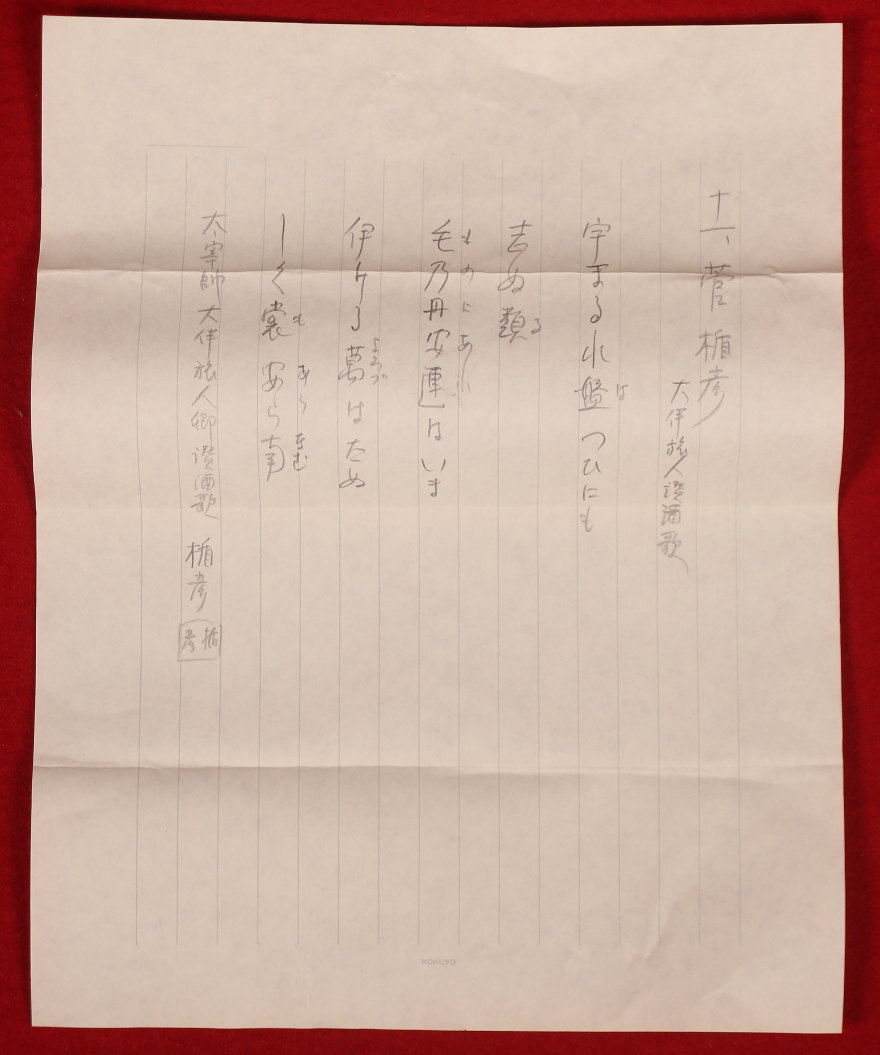 十一、菅楯彦
大伴旅人讃酒歌
宇まる礼盤つひにも
は
志ぬ類
る
毛乃丹安連はいま
ものにあれ
伊ける萬はたぬ
よろづ
しく裳安らなむ
も あら なむ
太宰帥 大伴旅人卿讃酒歌 楯彦
楯彦
KOKUYO